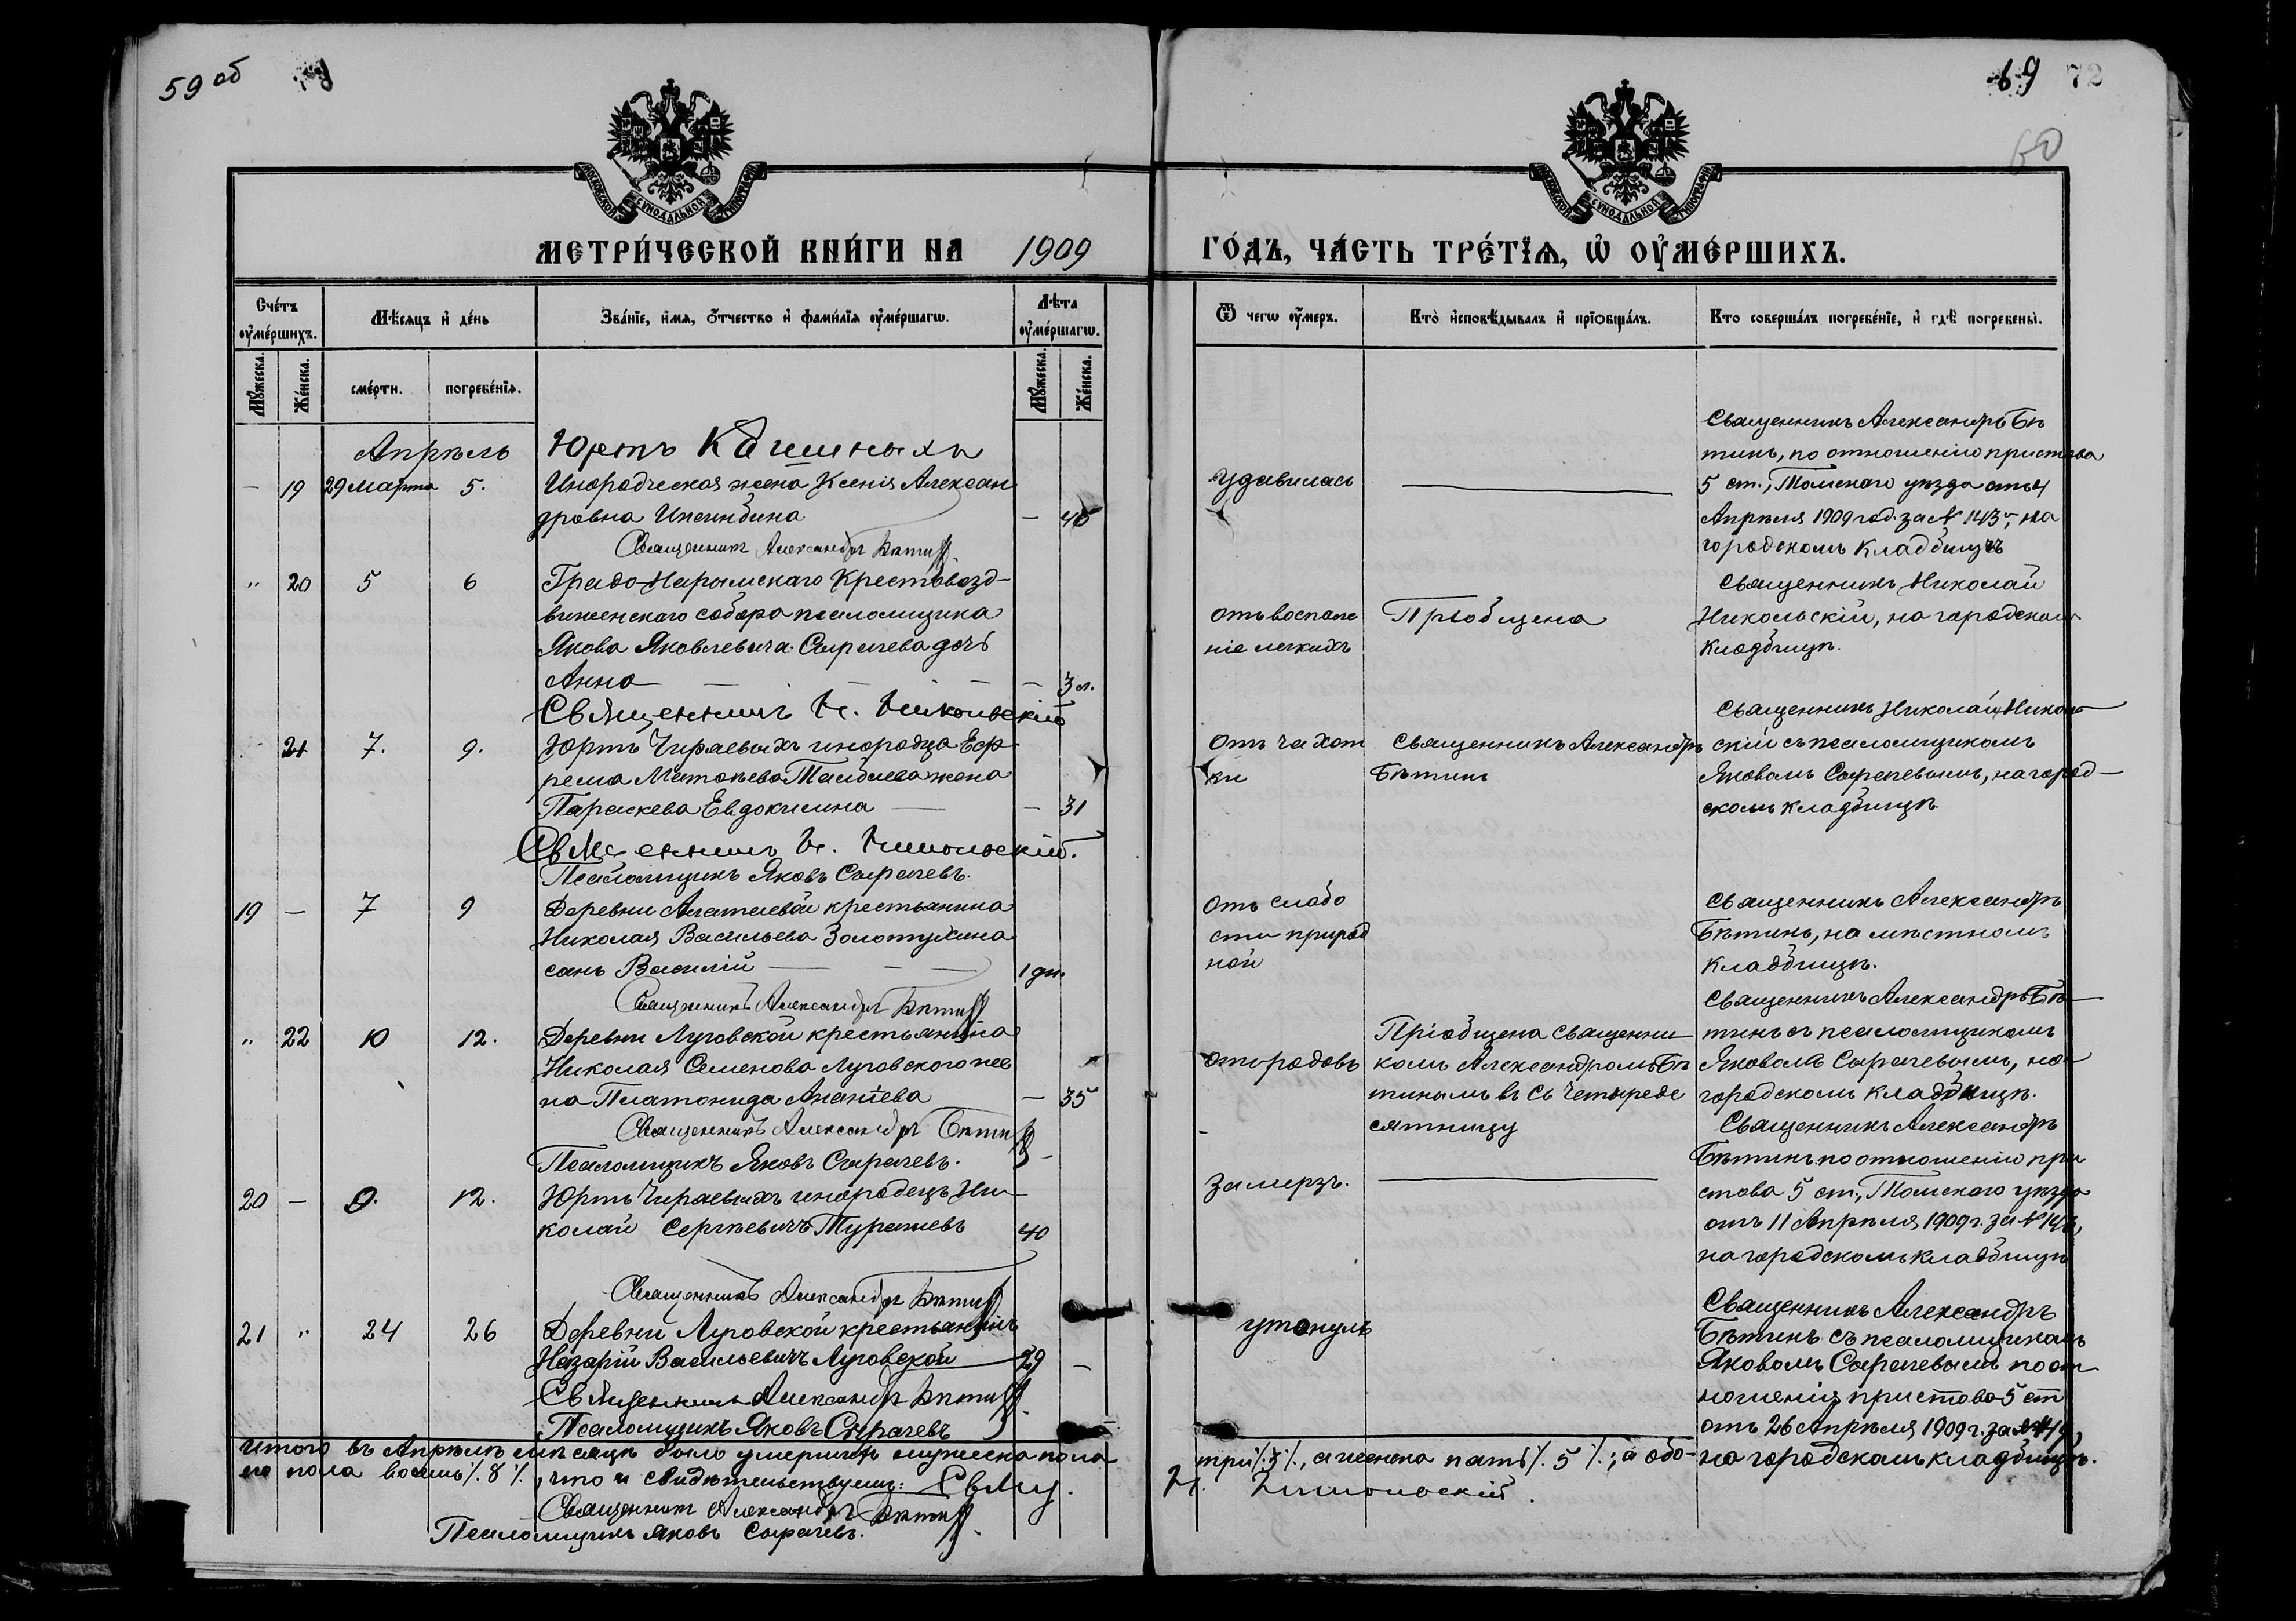 59 об
69 72
60
МОСКОВСКОЙ СѴНОДАЛЬНОЙ ТИПОГРАФІИ
МОСКОВСКОЙ СѴНОДАЛЬНОЙ ТИПОГРАФІИ
МЕТРИ́ЧЕСКОЙ КНИ́ГИ НА 1909 ГО́ДЪ, ЧА́СТЬ ТРЕ́ТЇѦ, Ѡ҆ ОУ҆МЕ́РШИХЪ.
Сче́тъ оу҆ме́ршихъ.
Мѣ́сяцъ и҆ де́нь
Зва́нїе, и҆́мя, ѻ҆́тчество и҆ фами́лїя оу҆ме́ршагѡ.
Лѣ́та оу҆ме́ршагѡ.
Ѿ чегѡ̀ оу҆́меръ.
Кто̀ и҆сповѣ́дывалъ и҆ прїѡбща́лъ.
Кто соверша́лъ погребе́нїе, и҆ гдѣ̀ погребены̀.
Мꙋ́жеска. Же́нска. сме́рти. погребе́нїя. Мꙋ́жеска. Же́нска.
Апрѣль Юртъ
— 19 29 марта 5. Инородческая жена Ксенія Алексан
дровна — 40
Священникъ Александръ Бѣтинъ
удавилась
Священникъ Александръ Бѣ
тинъ, по отношенію пристава
5 ст., Томскаго уѣзда отъ 4
Апрѣля 1909 год. за № 143, на
городскомъ кладбищѣ
" 20 5 6 Градо-Нарымскаго Крестовозд-
виженскаго собора псаломщика
Якова Яковлевича Сырачева дочь
Анна — 3 л.
Священникъ Н. Никольскій
отъ воспале
ніе легкихъ
Пріобщена
Священникъ Николай
Никольскій, на городскомъ
кладбищѣ.
21 7. 9. Юртъ Чираевыхъ инородца Еф
рема жена
Параскева Евдокимова — 31
Священникъ Н. Никольскій.
Псаломщикъ Яковъ Сырачевъ.
отъ чахот
ки
Священникъ Александръ
Бѣтинъ
Священникъ Николай Николь
скій съ псаломщикомъ
Яковомъ Сырачевымъ, на город-
скомъ кладбищѣ.
19 — 7 9 Деревни крестьянина
Николая Васильева Золотухина
сынъ Василій 1 дн.
Священникъ Александръ Бѣтинъ
отъ слабо
сти природ
ной
Священникъ Александръ
Бѣтинъ, на мѣстномъ
кладбищѣ.
" 22 10 12. Деревни Луговской крестьянина
Николая Семенова Луговского же
на Платонида Ананіева — 35
Священникъ Александръ Бѣтинъ
Псаломщикъ Яковъ Сырачевъ.
отъ родовъ
Пріобщена Священни
комъ Александромъ Бѣ
тинымъ въ Св Четыреде
сятницу
Священникъ Александръ Бѣ
тинъ съ псаломщикомъ
Яковомъ Сырачевымъ, на
городскомъ кладбищѣ.
20 — 9. 12. Юртъ Чираевыхъ инородецъ Ни
колай Сергѣевичъ 40
Священникъ Александръ Бѣтинъ
замерзъ.
Священникъ Александръ
Бѣтинъ по отношенію при
става 5 ст., Томскаго уѣзда
отъ 11 Апрѣля 1909 г. за №
на городскомъ кладбищѣ
21 " 24 26 Деревни Луговской крестьянинъ
Назарій Васильевичъ Луговской 29 —
Священникъ Александръ Бѣтинъ
Псаломщикъ Яковъ Сырачевъ
утонулъ
Священникъ Александръ
Бѣтинъ съ псаломщикомъ
Яковомъ Сырачевымъ по от
ношенія пристава 5 ст
отъ 26 Апрѣля 1909 г. за №
на городскомъ кладбищѣ.
Итого въ Апрѣлѣ мѣсяцѣ было умершихъ мужеска пола три ./. 3 ./., а женска пять ./. 5 ./.; а обо-
его пола восемь ./. 8 ./., что и свидѣтельствуемъ: Свящ. Н. Никольскій.
Священникъ Александръ Бѣтинъ
Псаломщикъ Яковъ Сырачевъ.